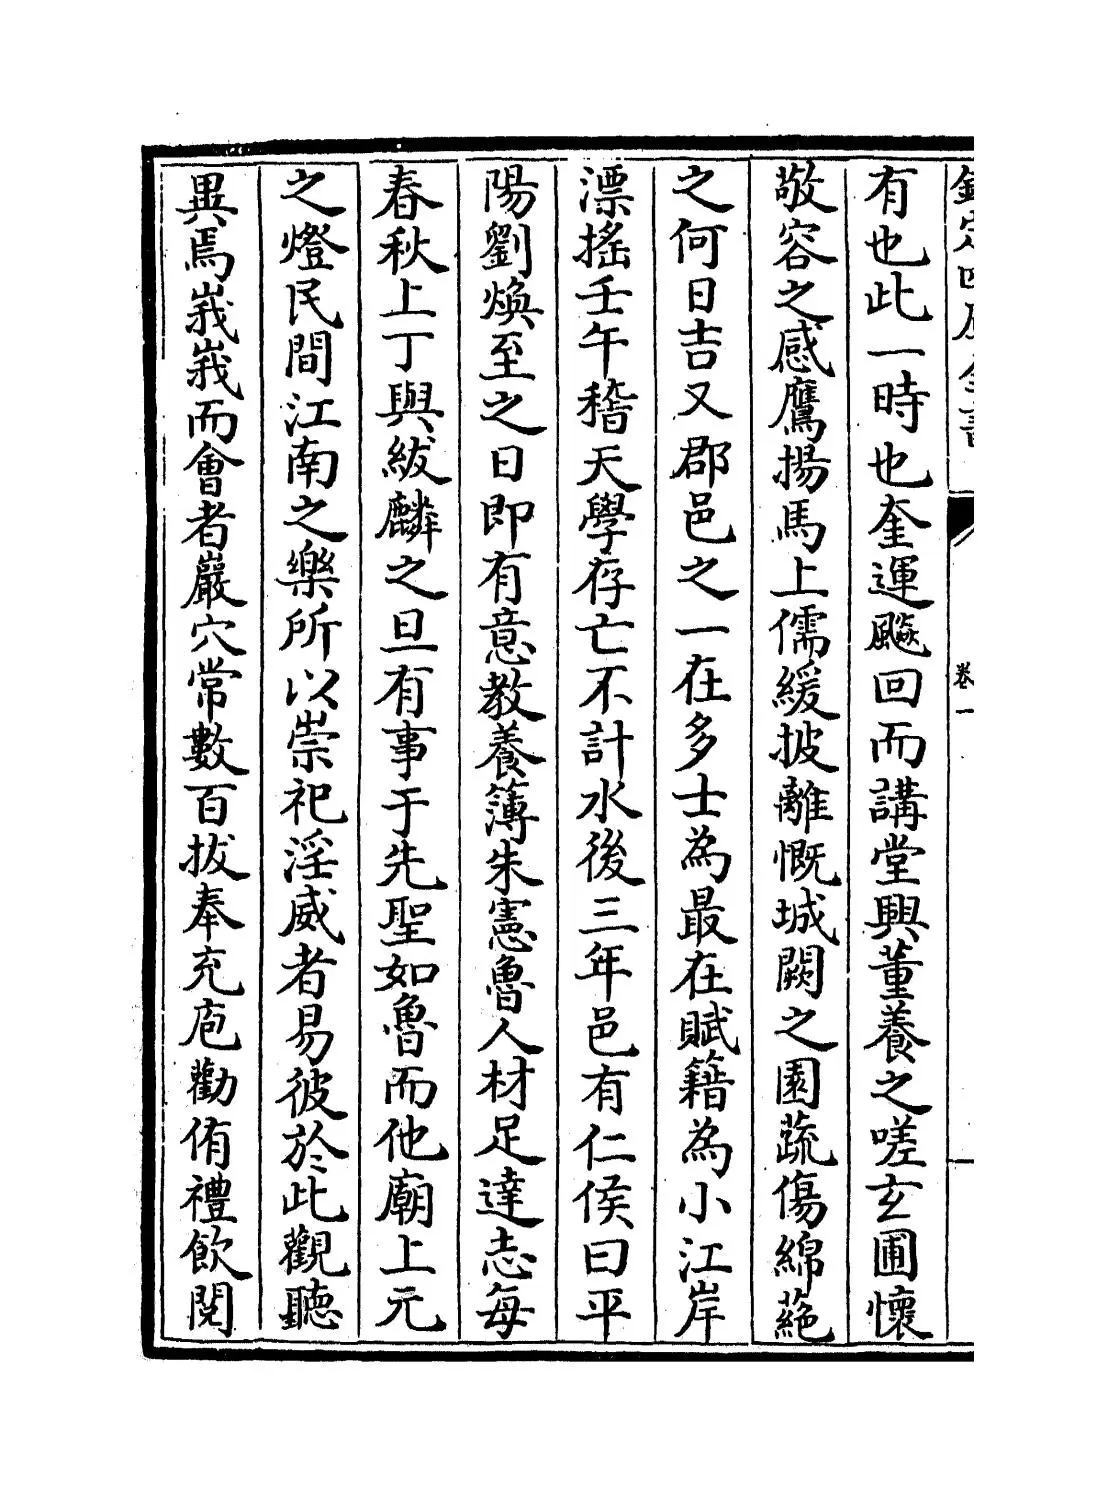 欽定四庫全書
卷一
有也此一時也奎運飈回而講堂興董養之嗟玄圃懷
敬容之感鷹揚馬上儒緩披離慨城闕之園蔬傷綿蕝
之何日吉又郡邑之一在多士為最在賦籍為小江岸
漂搖壬午稽天學存亡不計水後三年邑有仁侯曰平
陽劉煥至之日即有意教養簿朱憲魯人材足達志每
春秋上丁與紱麟之旦有事于先聖如魯而他廟上元
之燈民間江南之樂所以崇祀淫威者易彼於此觀聽
異焉峩峩而會者巖穴常數百拔奉充庖勸侑禮飲閱